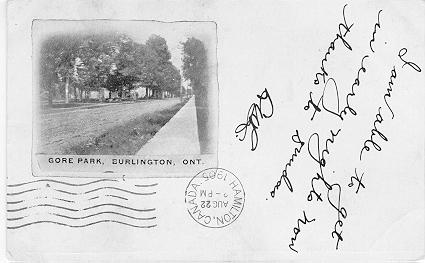 GORE PARK, BURLINGTON, ONT.
HAMILTON, CANADA.
PM
AUG 22
1905
I am able to get
in early night now
thanks to